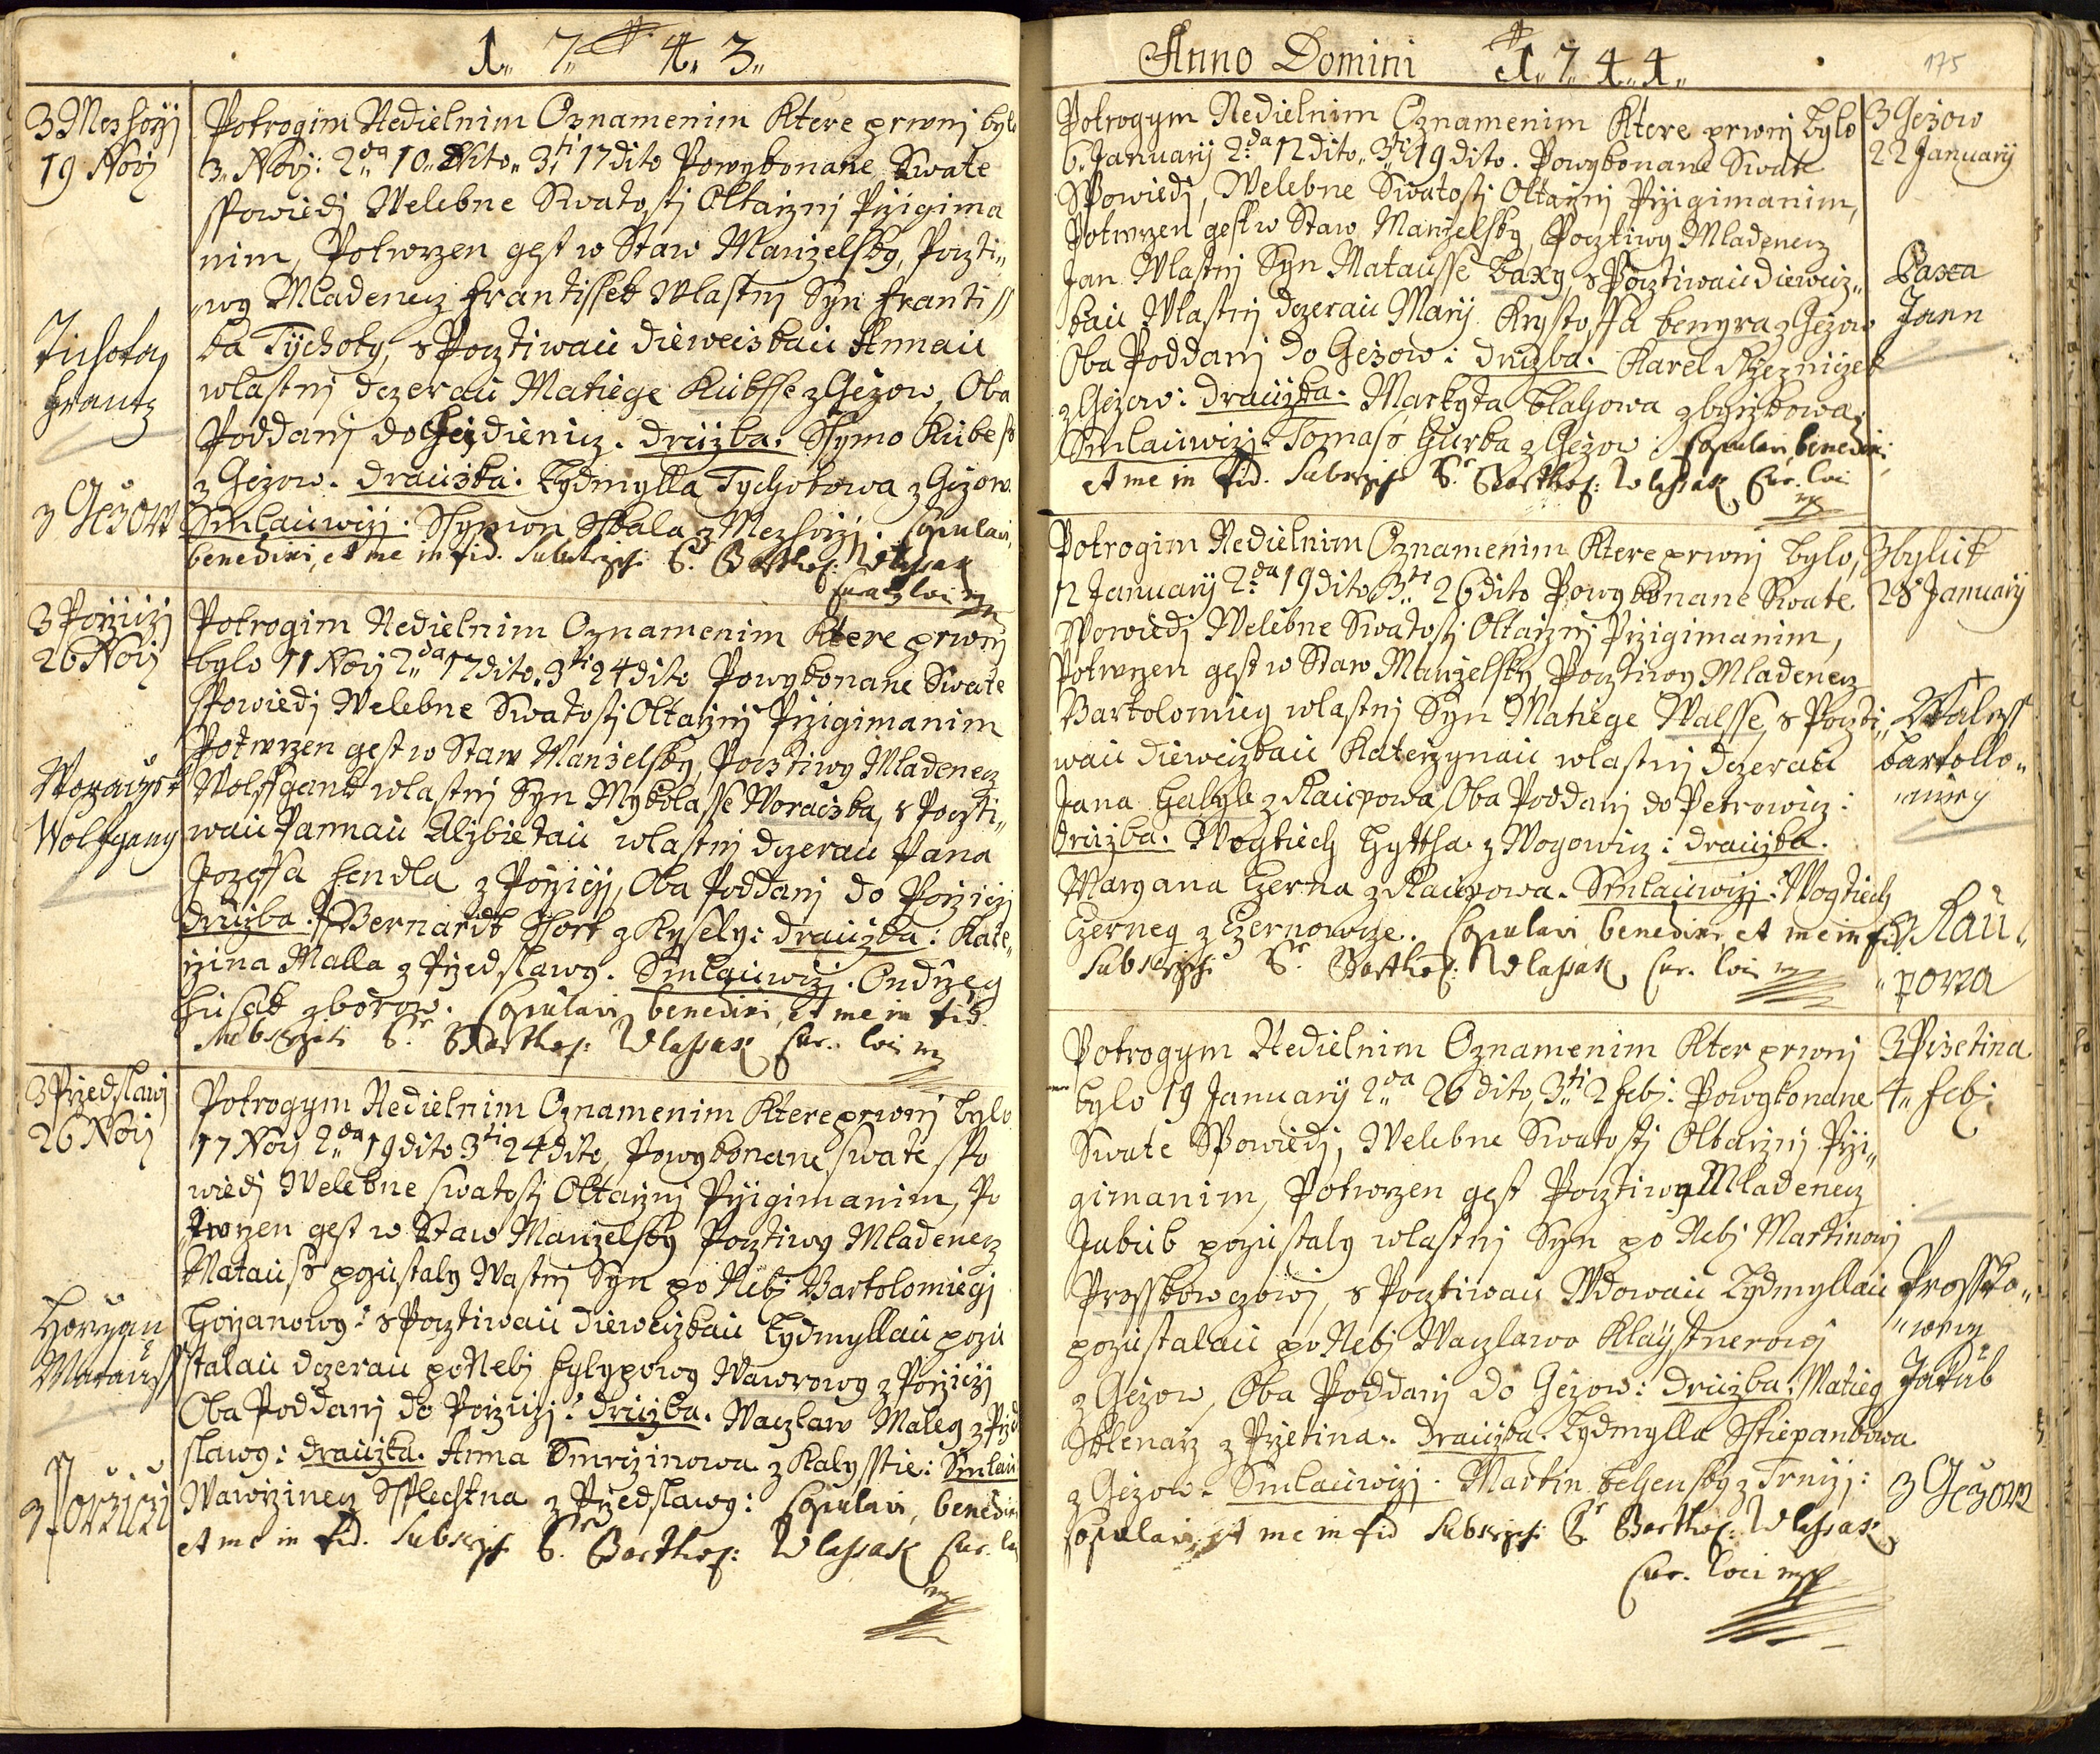 1. 7. 4. 3.
3 Mezhořj
19 Novj
Potrogim Nedielnim Oznamenim Ktere prwnj bylo
3. Novj: 2da 10. Dito. 3ti 17 dito Powykonane Swate
spowiedj Welebne Swatostj Oltařznj Přzigima
nim, Potwrzen gest w Staw Manželsky, Poczti„
„wy Mladenecz Frantissek Wlastnj Syn Frantiss
ka Tÿchoty, s Pocztiwau diewciskau Annau
wlastnj dczerau Matiege Kubsse z Gežow, Oba
Poddanj do Hejdienicz. družba. Ssymo Kubess
z Gežow. draužka. Lydmylla Tychotowa z Gežow.
Smlauwčzj. Ssymon Skala z Mezhořj. Copulavi,
benedixi, et me in fid. Subscripsi S. Barthol: Wlassak
Curat loci mp
Tichota
Frantz
z Gežow
3 Poržiczj
26 Novj
Potrogim Nedielnim Oznamenim Ktere prwnj
bylo 11 Novj 2da 17 dito. 3ti 24 dito Powykonane Swate
spowiedj Welebne Swatostj Oltařznj Přzigimanim
Potwrzen gest w Staw Manželsky, Pocztiwy Mladenecz
Wolffgank wlastnj Syn Mykolasse Woračzka, s Poczti„
wau Pannau Alžbietau wlastnj dczerau Pana
Jozeffa Hendla z Poržiczj, Oba Poddanj do Poržiczj
družba. Bernardt Hort z Kysely: draužka: Kate„
rzina Malla z Przedslawy. Smlauwčzj. Ondrzeg
Husak z borow. Copulavi, benedixi, et me in fid.
Subscripsi S. Barthol: Wlassak Cur. loci mp
Woraczek
Wolfgang
3 Przedslawj
26 Novj
Potrogym Nedielnim Oznamenim Ktere prwnj bylo
17 Novj 2da 19 dito 3ti 24 dito, Powykonane swate spo
wiedj Welebne swatostj Oltařznj Přzigimanim, Po
twrzen gest w Staw Manželsky Pocztiwy Mladenecz
Matauss pozustaly Wastnj Syn po Nebj Bartolomiegj
Horžanowy: s Pocztiwau diewcizkau Lydmyllau pozu
stalau dczerau po Nebj Fylypowy Wawrowy z Poržiczj
Oba Poddanj do Poržiczj: družba. Waczlaw Maleg z Przed
slawy: draužka. Anna Smržinowa z Kalysstie: Smlau
Wawržinecz Spllechtna z Przedslawy: Copulavi, benedixi
et me in fid. Subscripsi S. Barthol: Wlassak Cur. loci
mp
Horzan
Matauss
z Poržiczj
Anno Domini 1. 7. 4. 4.
175
Potrogym Nedielnim Oznamenim Ktere prwnj bylo
6. Januarij 2da 12 dito. 3ti 19 dito. Powykonane Swate
Spowiedj, Welebne Swatostj Oltařznj Přzigimanim,
Potwrzen gest w Staw Manželsky, Pocztiwy Mladenecz
Jan Wlastnj Syn Matausse Baxy, s Pocztiwau diewciz„
kau Wlastnj dczerau Marij Krystoffa benyra z Gežow
Oba Poddanj do Gežow: družba. Karel Ržezniczek
z Gežow: draužka. Markyta Blahowa z bržizkowa
Smlauwčzj. Tomass Hurka z Gežow: Copulavi, benedixi,
et me in fid. Subscripsi S. Barthol: Wlassak Cur. loci
mp
3 Gežow
22 Januarij
Baxa
Jann
Potrogim Nedielnim Oznamenim Ktere prwnj bylo,
12 Januarij 2da 19 dito 3ti 26 dito Powykonane Swate
Spowiedj Welebne Swatostj Oltařznj Přzigimanim,
Potwrzen gest w Staw Manželsky, Pocztiwy Mladenecz
Bartolomieg wlastnj Syn Matiege Walsse, s Poczti„
wau diewcizkau Katerzynau wlastnj dczerau
Jana Habyla z Raupowa, Oba Poddanj do Petrowicz:
družba. Wogtiech Hyttha z Wogowicz: draužka.
Maryana Czerna z Raupowa. Smlauwčzj: Wogtiech
Czerneg z Czernowcze. Copulavi benedixi, et me in fid
Subscripsi S. Barthol: Wlassak Cur. loci mp
3 bylich
28 Januarij
Waless
Bartollo„
„mieg
z Rau„
„powa
Potrogym Nedielnim Oznamenim Kter prwnj
bylo 19 Januarij 2da 26 dito, 3ti 2 Febr: Powykonane
Swate Spowiedj, Welebne Swatostj Oltaržnj Přzi„
gimanim, Potwrzen gest Pocztiwy Mladenecz
Jakub pozustaly wlastnj Syn po Nebj Martinowj
Prosskowczowj, s Pocztiwau Wdowau Lydmyllau
pozustalau po Nebj Waczlawo Klaystnerowj
z Gežow, Oba Poddanj do Gežow: družba. Matieg
Sklenarž z Przetina. draužka. Lydmylla Sstiepankowa
z Gežow. Smlauwčzj. Martin behensky z Trnij:
Copulavi, et me in fid Subscripsi S. Barthol: Wlassak
Cur. loci mp
3 Przetina
4. Febr:
Prossko„
„wecz
Jakub
z Gežow